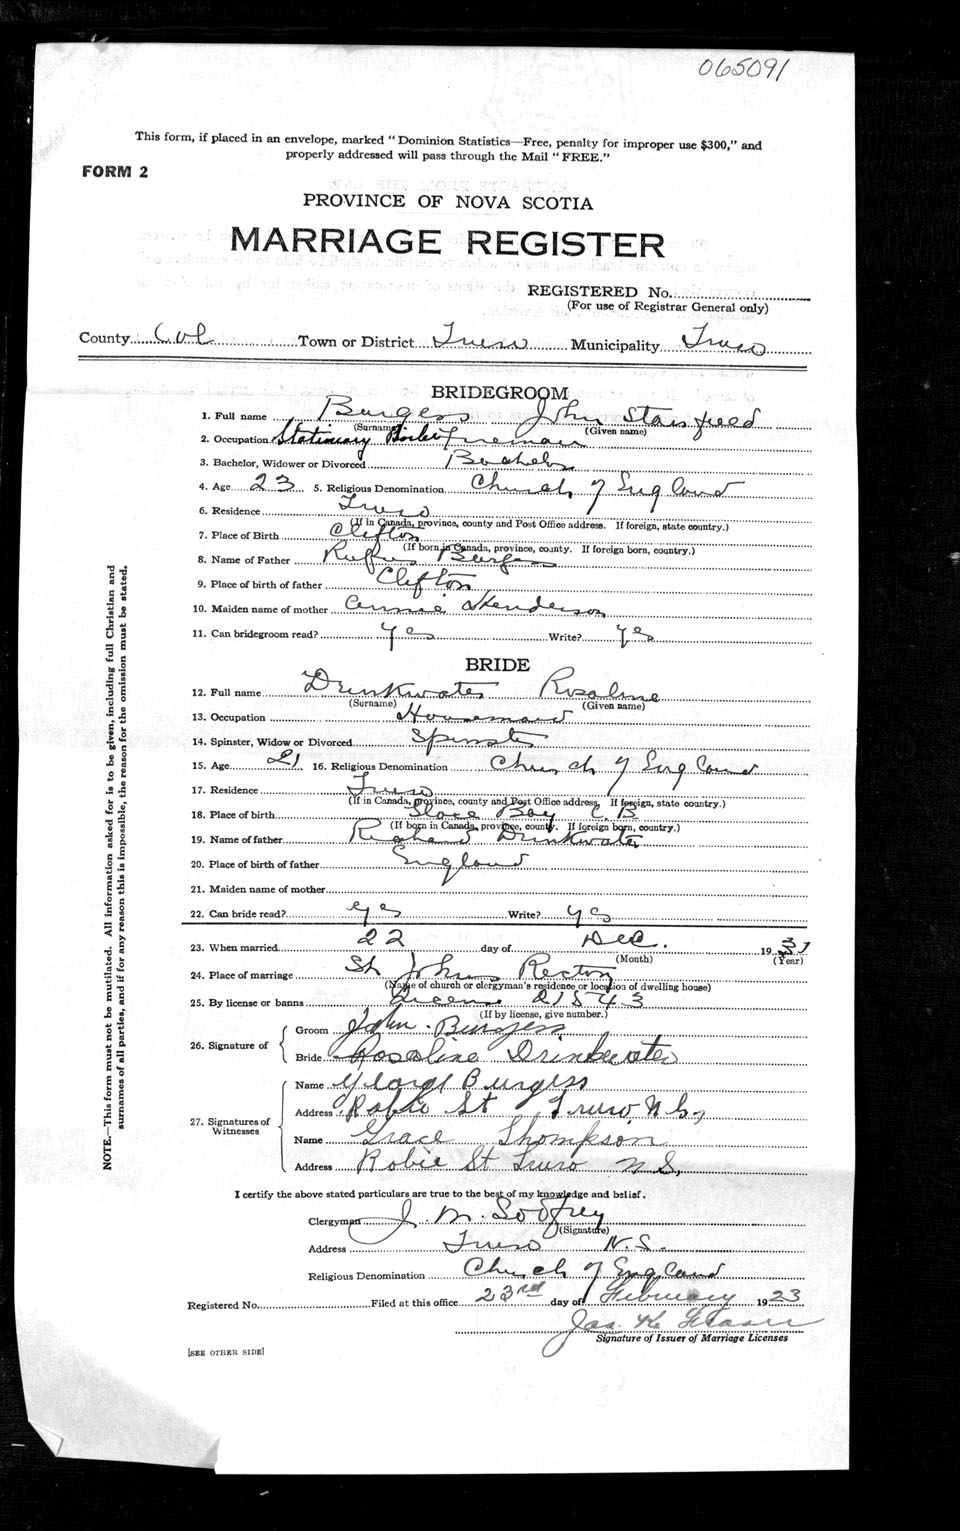 065091
This form, if placed in an envelope, marked "Dominion Statistics—Free, penalty for improper use $300," and
properly addressed will pass through the Mail "FREE."
FORM 2
PROVINCE OF NOVA SCOTIA
MARRIAGE REGISTER
REGISTERED No.
(For use of Registrar General only)
County Col Town or District Truro Municipality Truro
BRIDEGROOM
1. Full name Burgess John Stansfield
(Surname) (Given name)
2. Occupation Stationary Boiler Fireman
3. Bachelor, Widower or Divorced Bachelor
4. Age 23 5. Religious Denomination Church of England
6. Residence Truro
(If in Canada, province, county and Post Office address. If foreign, state country.)
7. Place of Birth Clifton
(If born in Canada, province, county. If foreign born, country.)
8. Name of Father Rufus Burgess
9. Place of birth of father Clifton
10. Maiden name of mother Annie Henderson
11. Can bridegroom read? Yes Write? Yes
BRIDE
12. Full name Drinkwater Rosaline
(Surname) (Given name)
13. Occupation Housemaid
14. Spinster, Widow or Divorced Spinster
15. Age 21 16. Religious Denomination Church of England
17. Residence Truro
(If in Canada, province, county and Post Office address. If foreign, state country.)
18. Place of birth Glace Bay C.B
(If born in Canada, province, county. If foreign born, country.)
19. Name of father Richard Drinkwater
20. Place of birth of father England
21. Maiden name of mother
22. Can bride read? yes Write? yes
23. When married 22 day of Dec. 1931
(Month) (Year)
24. Place of marriage St Johns Rectory
(Name of church or clergyman's residence or location of dwelling house)
25. By license or banns License 21543
(If by license, give number.)
26. Signature of
Groom John Burgess
Bride Rosaline Drinkwater
27. Signatures of Witnesses
Name George Burgess
Address Robie St Truro, N.S.
Name Grace Thompson
Address Robie St Truro N.S,
I certify the above stated particulars are true to the best of my knowledge and belief.
Clergyman J. M. Godfrey
(Signature)
Address Truro N.S.
Religious Denomination Church of England
Registered No. Filed at this office 23rd day of February 1923
Jas. K. Fraser
Signature of Issuer of Marriage Licenses
[SEE OTHER SIDE]
NOTE.—This form must not be mutilated. All information asked for is to be given, including full Christian and
surnames of all parties, and if for any reason this is impossible, the reason for the omission must be stated.